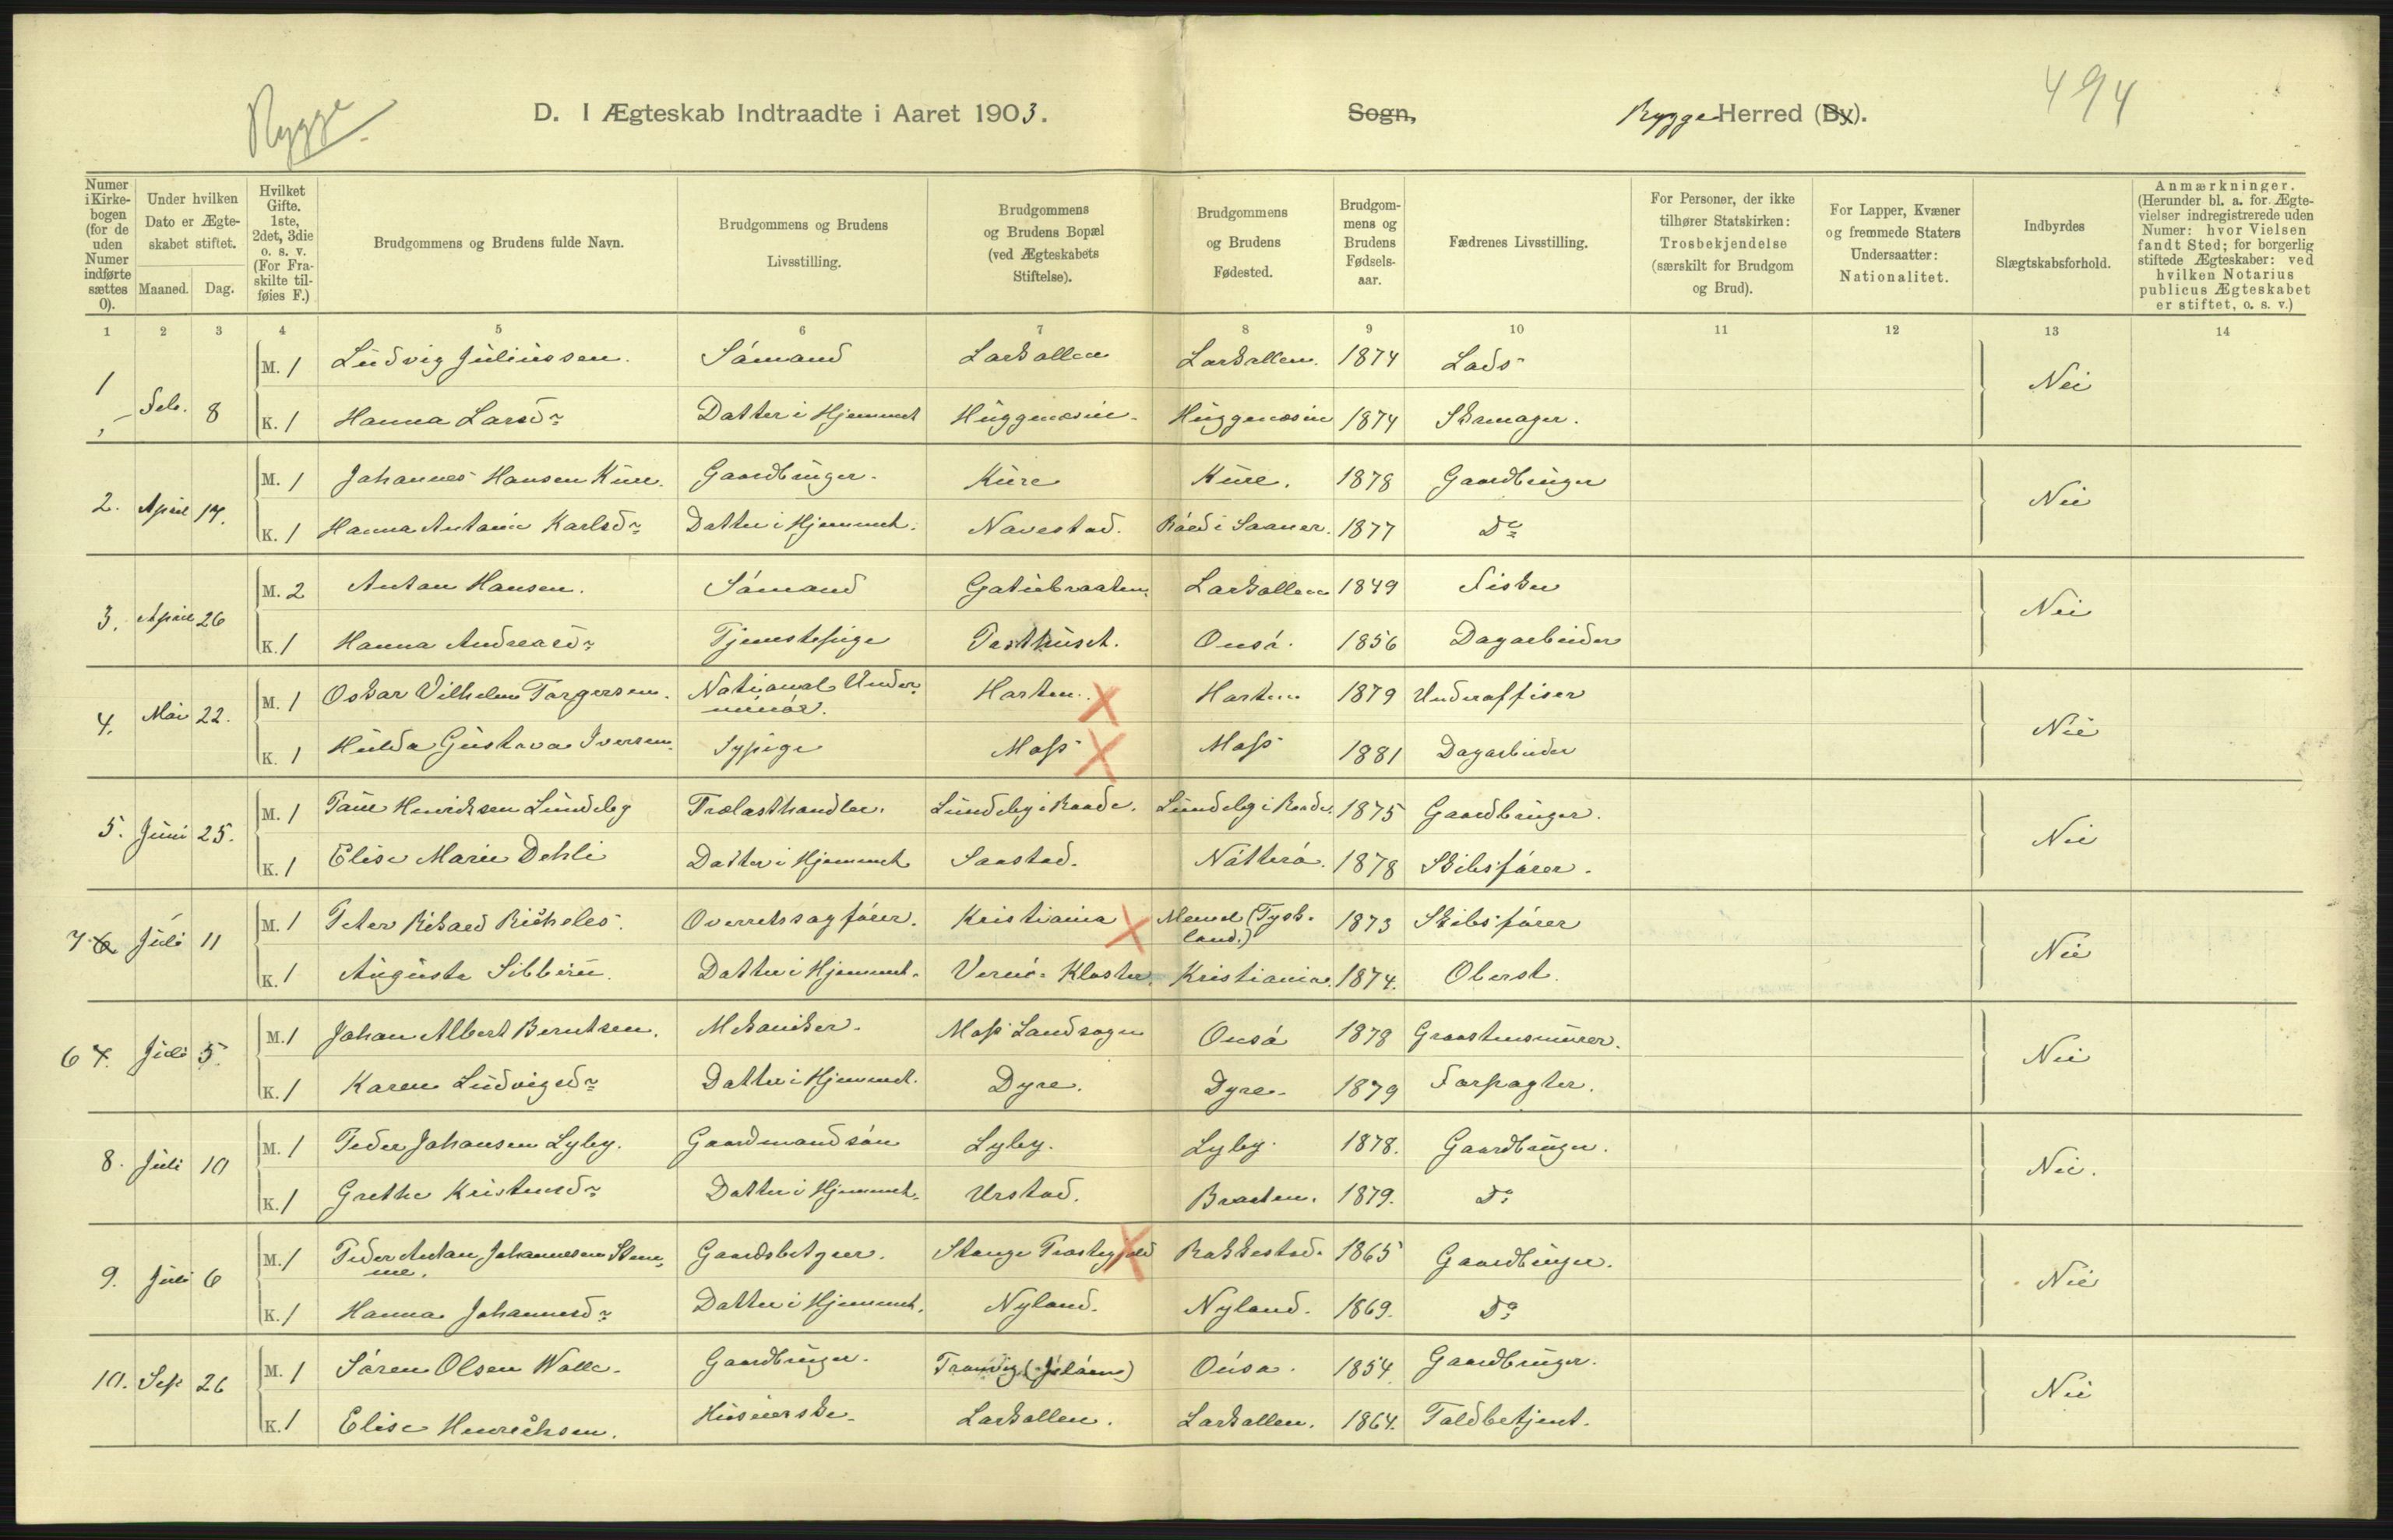 Rygge
D. I Ægteskab Indtraadte i Aaret 1903. Sogn, Rygge Herred (By). 494
Numer i Kirkebogen (for de uden Numer indførte sættes 0).
Under hvilken Dato er Ægteskabet stiftet.
Maaned. Dag.
Hvilket Gifte. 1ste, 2det, 3die o. s. v. (For Fraskilte tilføies F.)
Brudgommens og Brudens fulde Navn.
Brudgommens og Brudens Livsstilling.
Brudgommens og Brudens Bopæl (ved Ægteskabets Stiftelse).
Brudgommens og Brudens Fødested.
Brudgommens og Brudens Fødselsaar.
Fædrenes Livsstilling.
For Personer, der ikke tilhører Statskirken: Trosbekjendelse (særskilt for Brudgom og Brud).
For Lapper, Kvæner og fremmede Staters Undersaatter: Nationalitet.
Indbyrdes Slægtskabsforhold.
Anmærkninger. (Herunder bl. a. for Ægtevielser indregistrerede uden Numer: hvor Vielsen fandt Sted; for borgerlig stiftede Ægteskaber: ved hvilken Notarius publicus Ægteskabet er stiftet, o. s. v.)
1 2 3 4 5 6 7 8 9 10 11 12 13 14
1 Feb. 8 M. 1 Ludvig Juliussen. Sömand Larkollen Larkollen. 1874 Lods Nei
K. 1 Hanna Larsd. Datter i Hjemmet Huggenæsin. Huggenæsin 1874 Skrmager.
2. April 17. M. 1 Johannes Hansen Kure. Gaardbruger. Kure Kure. 1878 Gaardbruger Nei
K. 1 Hanna Antonie Karlsd. Datter i Hjemmet. Navestad. Röed i Saaner. 1877 Do
3. April 26 M. 2 Anton Hansen. Sömand Gatubraaten. Larkollen 1849 Fisker Nei
K. 1 Hanna Andreasd. Tjenestepige Posthuset. Onsö. 1856 Dagarbeider
4. Mai 22. M. 1 Oskar Vilhelm Torgersen. National Underminör. Horten. Horten 1879 Underoffiser Nei
K. 1 Hulda Gustava Iversen. Sypige Moss Moss 1881 Dagarbeider
5. Juni 25. M. 1 Paul Henriksen Lundeby Trælasthandler. Lundeby i Raade. Lundeby i Raade. 1875 Gaardbruger. Nei
K. 1 Elise Marie Dehli Datter i Hjemmet Saastad. Nötterö. 1878 Skibsförer.
7 6 Juli 11 M. 1 Peter Rikard Richeles. Overretssagförer. Kristiania Memel (Tyskland.) 1873 Skibsförer Nei
K. 1 Augusta Sibbern. Datter i Hjemmet. Vernö Kloster. Kristiania. 1874. Oberst.
6 7. Juli 5. M. 1 Johan Albert Berntsen. Mekaniker. Moss Landsogn Onsö 1878 Graastensmurer. Nei
K. 1 Karen Ludvigsd. Datter i Hjemmet. Dyre. Dyre. 1879 Forpagter.
8. Juli 10 M. 1 Peder Johansen Lyby. Gaardmandsön Lyby. Lyby. 1878. Gaardbruger. Nei.
K. 1 Grethe Kristensd. Datter i Hjemmet. Urstad. Braaten. 1879. Do
9. Juli 6 M. 1 Peder Anton Johannesen Gaardsbetyrer. Stange Prestegjeld Rakkestad. 1865 Gaardbruger. Nei
K. 1 Hanna Johannesd. Datter i Hjemmet. Nyland. Nyland. 1869. Do
10. Sep 26 M. 1 Sören Olsen Walle. Gaardbruger. Tronvig (Jelöen) Onsö. 1854. Gaardbruger. Nei
K. 1 Elise Henrichsen. Husierske. Larkollen. Larkollen. 1864. Toldbetjent.